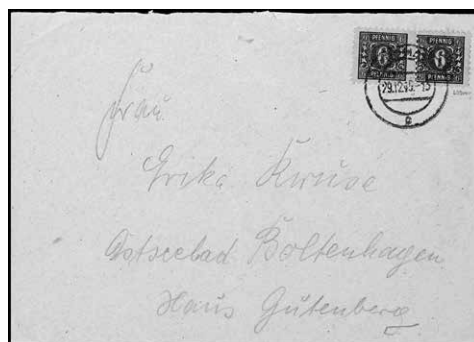 PFENNIG PFENNIG
6 6
PFENNIG PFENNIG
29.12.45.-13
a
Frau
Erika Kruse
Ostseebad Boltenhagen
Haus Gutenberg